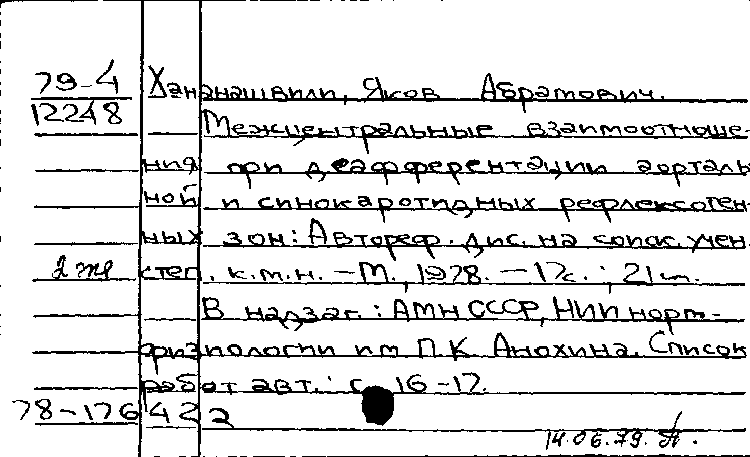 79-4 Хананашвили, Яков Абрамович.
12248
Межцентральные взаимоотноше-
ния при деафферентации аорталь
ной и синокаротидных рефлексоген-
ных зон: Автореф. дис. на соиск. учен.
2 экз степ. к.м.н. – М., 1978. – 17с.; 21см.
В надзаг.: АМН СССР, НИИ норм.
физиологии им П.К Анохина. Список
работ авт.: с. 16-17.
78-176422
14.06.79.